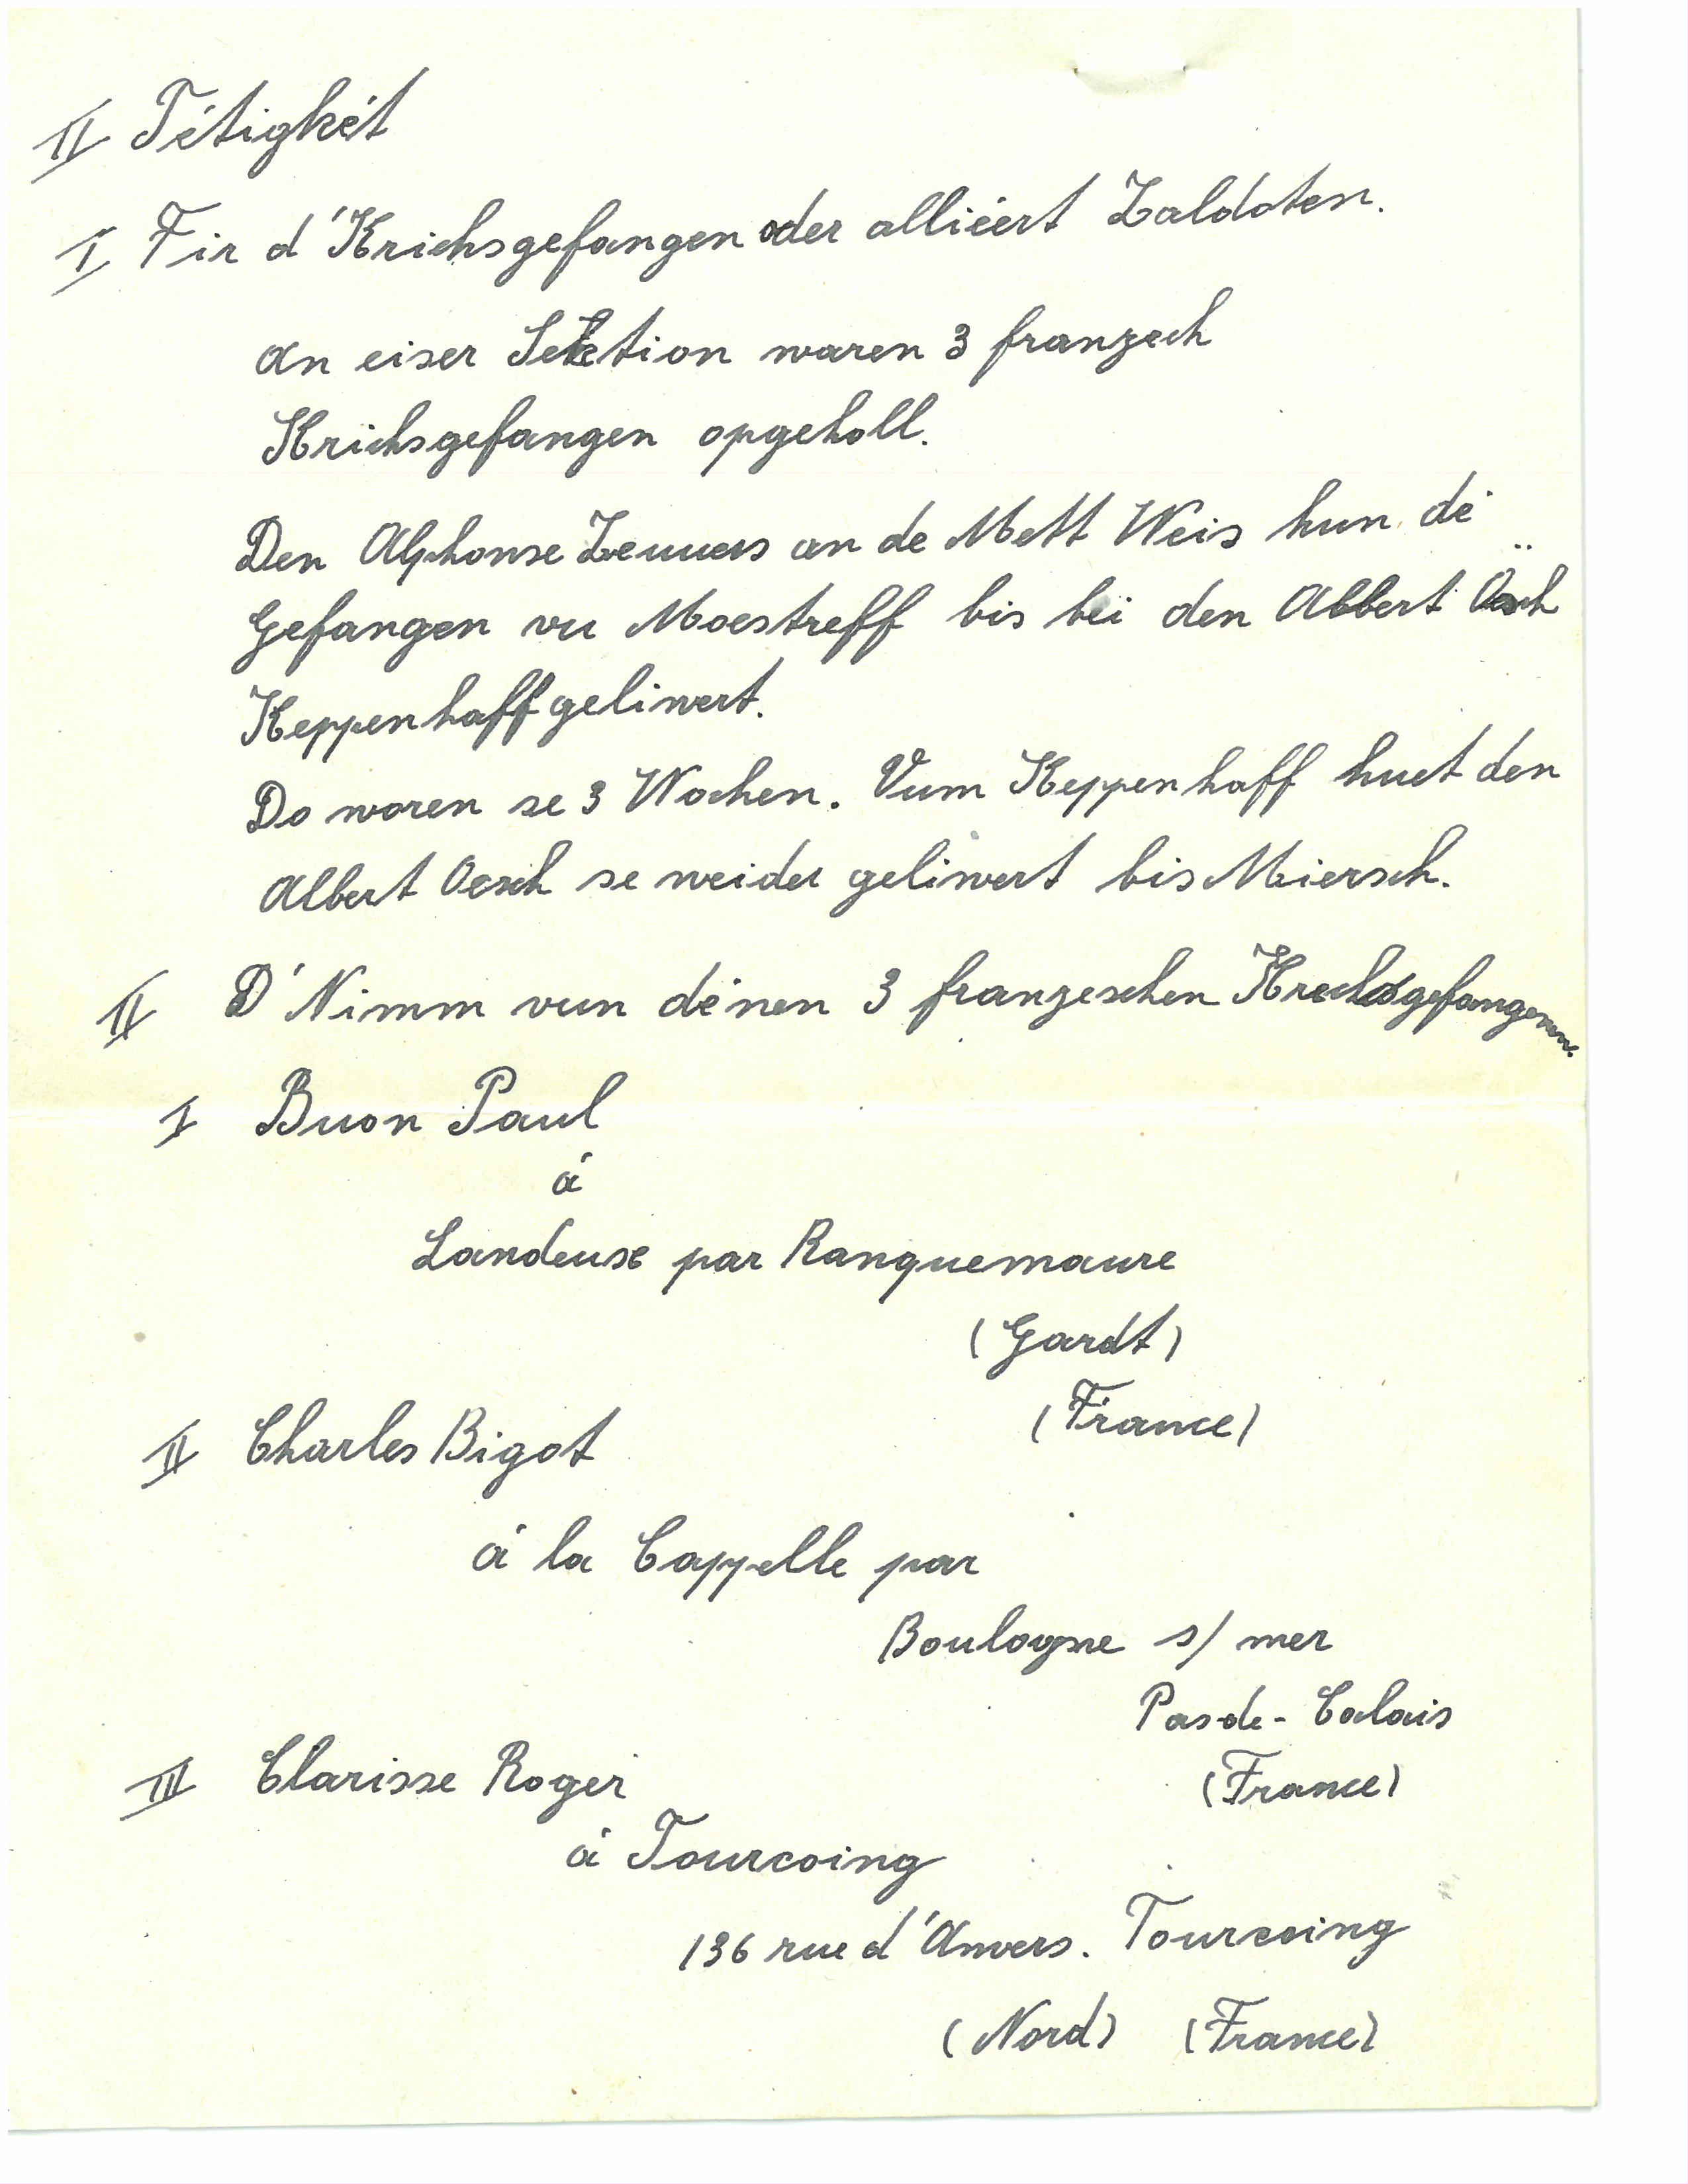 II Tétigkét
I Fir d'Krichsgefangen oder alliéert Zaldoten.
An eiser Sektion waren 3 franzech
Krichsgefangen opgeholl.
Den Alphonse an de Mett Weis hun dé
Gefangen vu Moestreff bis bëi den Albert Oesch
Keppenhaff geliwert.
Do woren se 3 Wochen. Vum Keppenhaff huet den
Albert Oesch se weider geliwert bis Miersch.
II D'Nimm vun dénen 3 franzeschen Krechsgefangenen.
I Buon Paul
á
Landeuse par Ranquemaure
(Gardt)
(France)
II Charles Bigot
á la Cappelle par
Boulogne s/ mer
Pas-de-Calais
(France)
III Clarisse Roger
á Tourcoing
136 rue d'Anvers. Tourcoing
(Nord) (France)